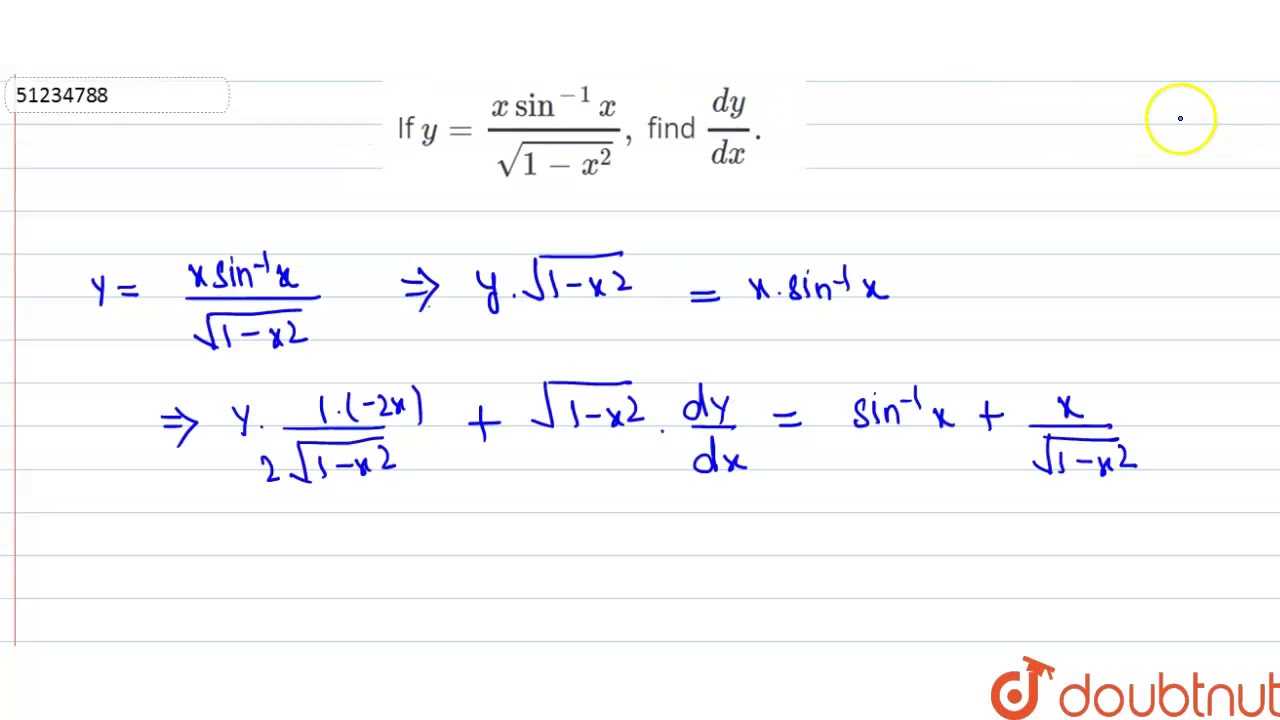 51234788
If y = \frac{x \sin^{-1} x}{\sqrt{1 - x^2}}, find \frac{dy}{dx}.
y = \frac{x sin^{-1} x}{\sqrt{1-x^2}} ⇒ y . \sqrt{1-x^2} = x . sin^{-1} x
⇒ y . \frac{1.(-2x)}{2\sqrt{1-x^2}} + \sqrt{1-x^2} . \frac{dy}{dx} = sin^{-1} x + \frac{x}{\sqrt{1-x^2}}
doubtnut